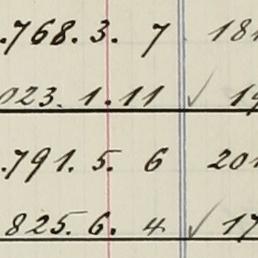 .768. 3. 7 181
023. 1. 11 ✓ 19
.791. 5. 6 201
825. 6. 4 ✓ 17